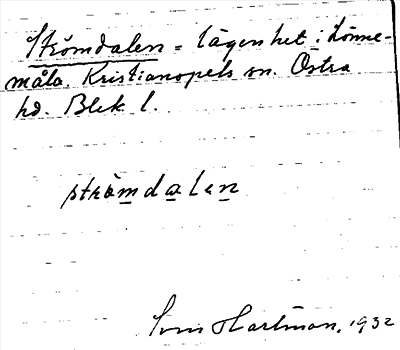 Strömdalen = lägenhet i Lönne-
måla. Kristianopels sn. Östra
hd. Blek l.
strömdalen
Sven Hartman. 1932